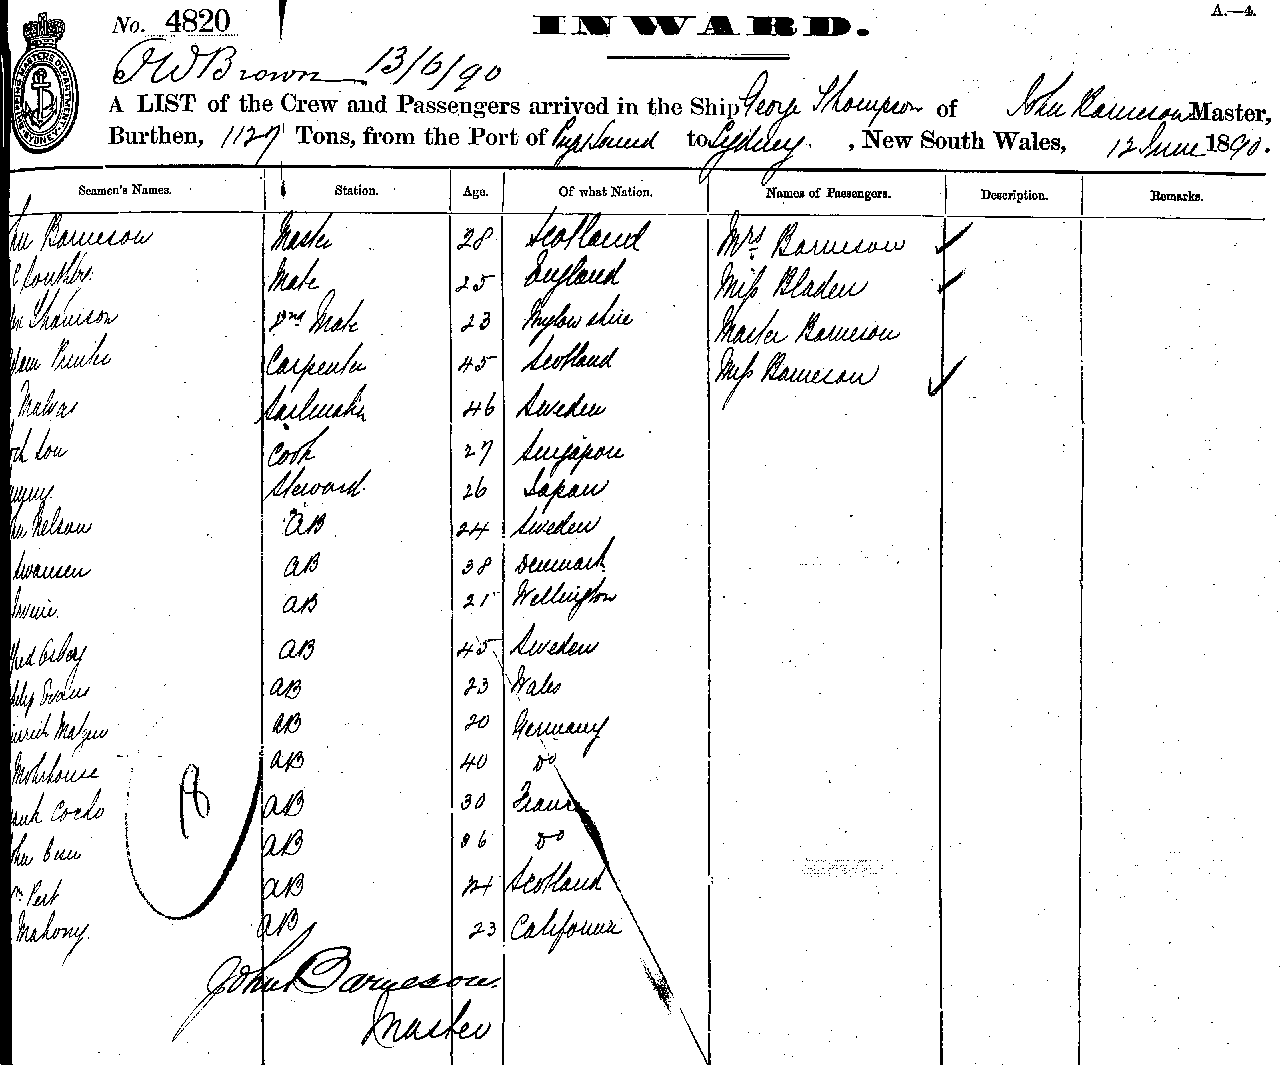 No. 4820
INWARD.
A.—4.
J W Brown 13/6/90
A LIST of the Crew and Passengers arrived in the Ship George Thompson of John Barneson Master,
Burthen, 1127 Tons, from the Port of to Sydney, New South Wales, 12 June 1890.
Seamen's Names. Station. Age. Of what Nation. Names of Passengers. Description. Remarks.
Barneson Master 28 Scotland Mrs Barneson
Mate 25 England Miss Bladen
2nd Mate 23 Master Barneson
Carpenter 45 Scotland Miss Barneson
Sailmaker 46 Sweden
Cook 27 Singapore
Steward 26 Japan
Nelson AB 24 Sweden
Swansen AB 38 Denmark
AB 21 Wellington
AB 45 Sweden
Evans AB 23 Wales
AB 20 Germany
AB 40 Do
AB 30 France
AB 36 Do
Pert AB 24 Scotland
Mahony. AB 23 California
18
John Barneson
Master